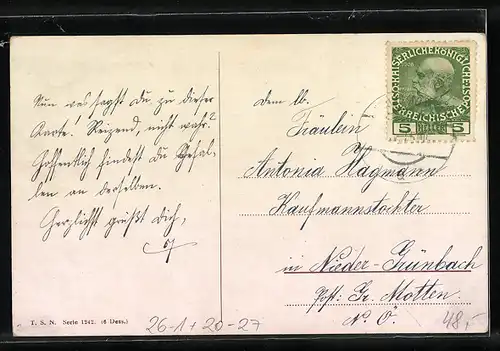 Nun was sagst Du zu dieser
Karte! Reizend, nicht wahr?
Hoffentlich findest Du Gefal-
len an derselben.
Herzlichst grüßt Dich,
dem lb.
Fräulein
Antonia Hagmann
Kaufmannstochter
in Nieder-Grünbach
Post: Gr. Motten
N. Ö.
KAISERLICHEKÖNIGLICHE
ÖSTERREICHISCHE
5 HELLER 5
T. S. N. Serie 1242. (6 Dess.)
26-1+20-27
48,-